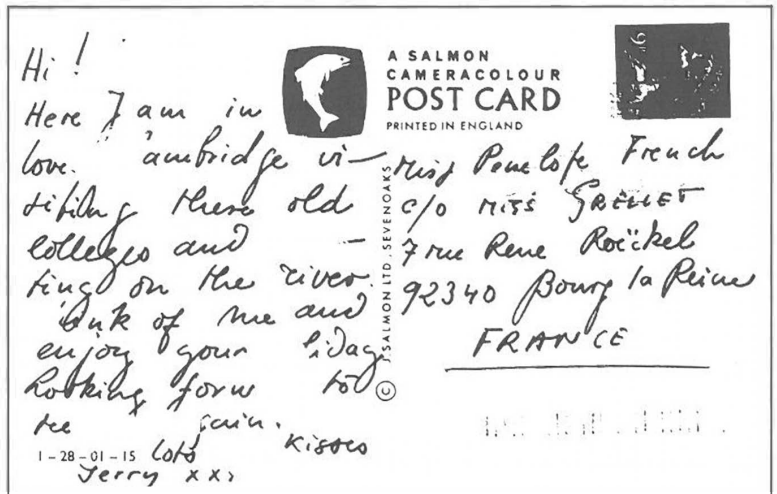 Hi !
Here I am in
love. ambridge vi-
siting these old
colleges and -
ting on the river.
ink of me and
enjoy your liday
Looking forw to
see gain.
Lots Kisses
Jerry xx
1-28-01-15
A SALMON
CAMERACOLOUR
POST CARD
PRINTED IN ENGLAND
© J. SALMON LTD., SEVENOAKS
Miss Penelope French
c/o MISS GRELLET
7 rue Rene Roëckel
92340 Bourg la Reine
FRANCE